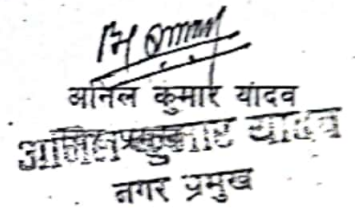 अनिल कुमार यादव
अनिल कुमार यादव
नगर प्रमुख